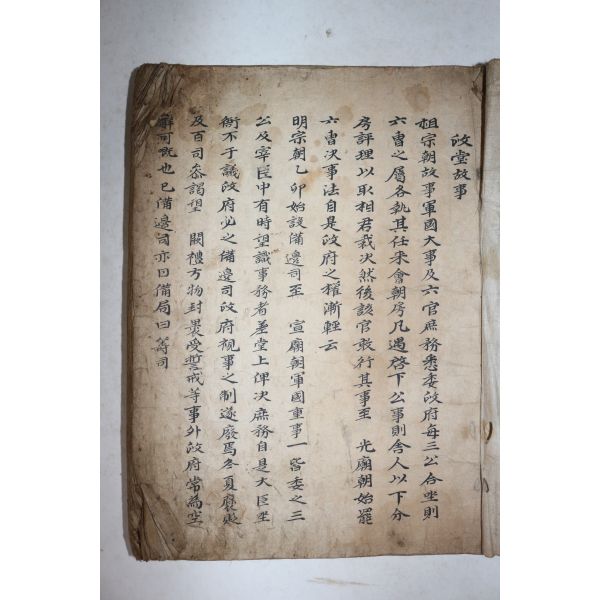 政堂故事
祖宗朝故事軍國大事及六官庶務悉委政府每三公合坐則
六曺之屬各執其任來會朝房凡遇啓下公事則舍人以下分
房評理以取相君裁决然後該官敢行其事至 光廟朝始罷
六曺决事法自是政府之權漸輕云
明宗朝乙卯始設備邊司至 宣廟朝軍國重事一皆委之三
公及宰臣中有時望識事務者差堂上俾决庶務自是大臣坐
衙不于議政府必之備邊司政府視事之制遂廢焉冬夏褒貶
及百司叅謁望 闕禮方物封褁受誓戒等事外政府常爲空
廨可旣也已備邊司亦曰備局曰籌司